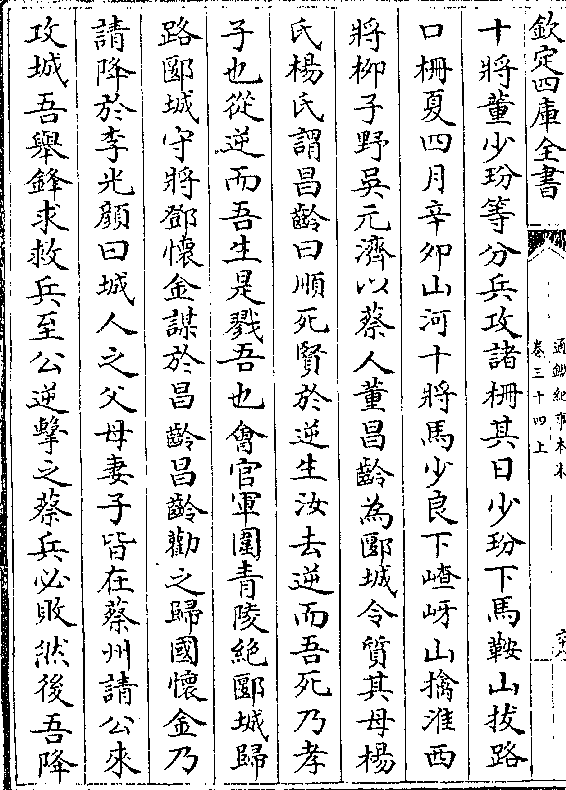 欽定四庫全書
通鑑紀事本末
卷三十四上
六十八
十將董少玢等分兵攻諸柵其日少玢下馬鞍山拔路
口柵夏四月辛卯山河十將馬少良下嵖岈山擒淮西
將柳子野吳元濟以蔡人董昌齡為郾城令質其母楊
氏楊氏謂昌齡曰順死賢於逆生汝去逆而吾死乃孝
子也從逆而吾生是戮吾也會官軍圍青陵絶郾城歸
路郾城守將鄧懷金謀於昌齡昌齡勸之歸國懷金乃
請降於李光顔曰城人之父母妻子皆在蔡州請公來
攻城吾舉鋒求救兵至公逆擊之蔡兵必敗然後吾降